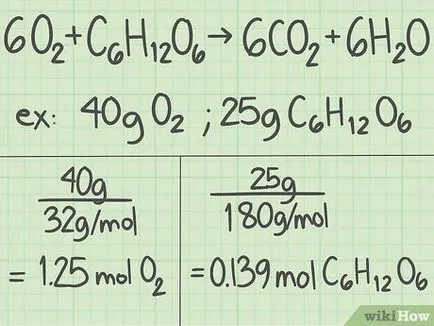 6O₂ + C₆H₁₂O₆ → 6CO₂ + 6H₂O
ex: 40g O₂ ; 25g C₆H₁₂O₆
40g
32g/mol
= 1.25 mol O₂
25g
180g/mol
= 0.139 mol C₆H₁₂O₆
wikiHow